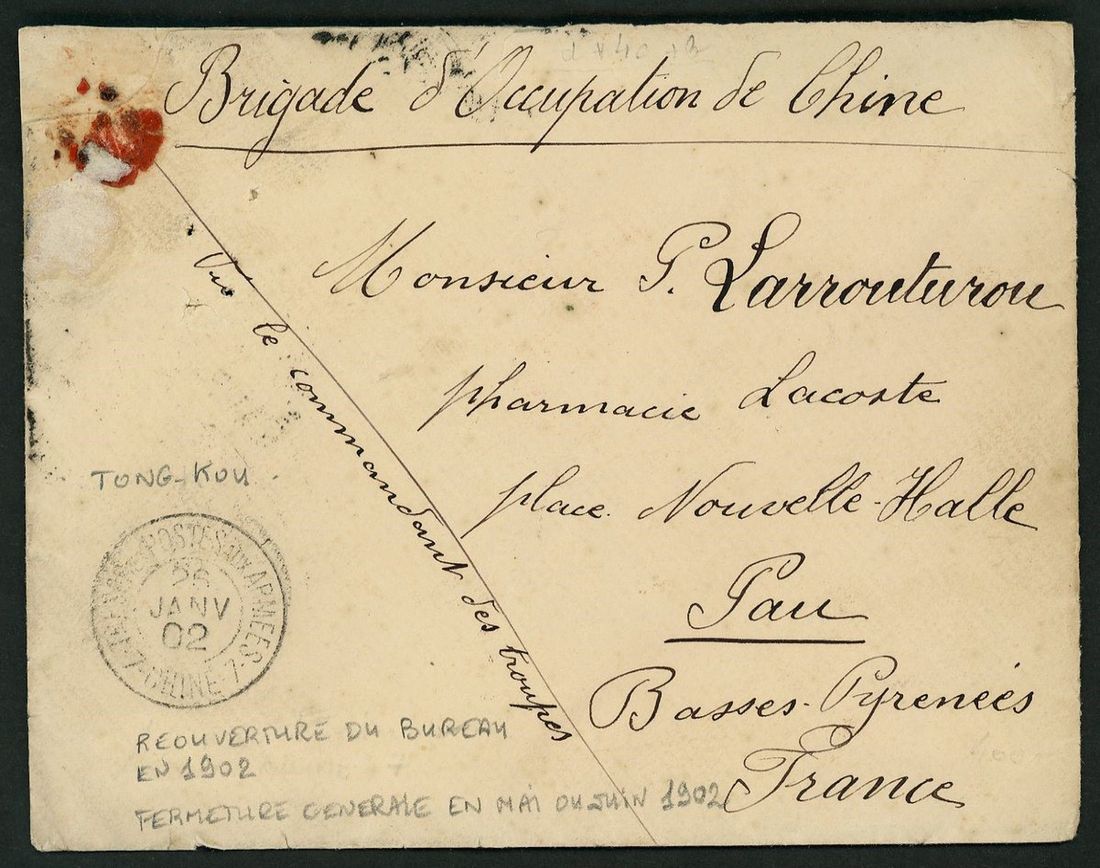 Brigade d'Occupation de Chine
Vu le commandant des troupes
Monsieur P. Larrouturou
pharmacie Lacoste
place Nouvelle-Halle
Pau
Basses-Pyrenées
France
TONG-KOU
POSTES AUX ARMÉES
26
JANV
02
7-CHINE-7
REOUVERTURE DU BUREAU
EN 1902
FERMETURE GENERALE EN MAI OU JUIN 1902